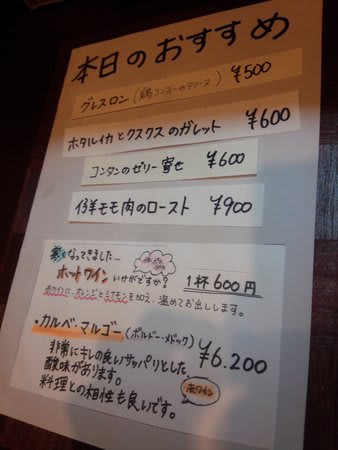 本日のおすすめ
グレスロン(鶏コンフィーのテリーヌ) ¥500
ホタルイカとクスクスのガレット ¥600
コンタンのゼリー寄せ ¥600
仔羊モモ肉のロースト ¥900
寒くなってきました…
ホットワイン いかがですか? 1杯600円
赤ワインに、オレンジとシナモンを加え、温めてお出しします。
・カルベ・マルゴー(ボルドー・メドック) ¥6.200
非常にキレの良いサッパリとした
酸味があります。
料理との相性も良いです。
赤ワイン